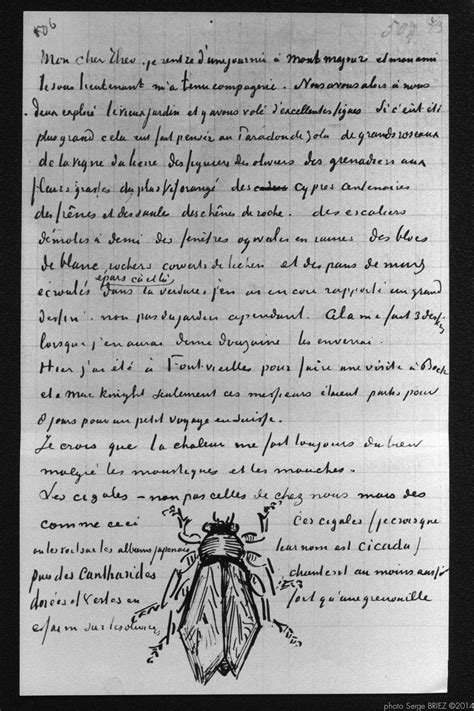 506
507 73
Mon cher Theo. je rentre d'une journée à Mont majour et mon ami
le sous lieutenant m'a tenu compagnie. Nous avons alors à nous
deux exploré le vieux jardin et y avons volé d'excellentes figues. Si c'eut été
plus grand cela eut fait penser au Paradou de Zola de grands roseaux
de la vigne du lierre des figuiers des oliviers des grenadiers aux
fleurs grasses du plus vif orangé des cyprès centenaires
des frênes et des saules des chênes de roche. des escaliers
démolis à demi des fenêtres ogivales en ruines des blocs
de blanc rochers couverts de lichen et des pans de murs
écroulés épars çà et là dans la verdure, j'en ai encore rapporté un grand
dessin. non pas du jardin cependant. Cela me fait 3 dess.
lorsque j'en aurai demi douzaine les enverrai.
Hier j'ai été à Fontvieilles pour faire une visite à Bock
et à Mac Knight seulement ces messieurs étaient partis pour
8 jours pour un petit voyage en Suisse.
Je crois que la chaleur me fait toujours du bien
malgré les moustiques et les mouches.
Les cigales – non pas celles de chez nous mais des
comme ceci
on les voit sur les albums japonais
puis des Cantharides
dorées et vertes en
essaim sur les oliviers
Ces cigales (je crois que
leur nom est cicada)
chantent au moins aussi
fort qu'une grenouille
photo Serge BRIEZ ©2014